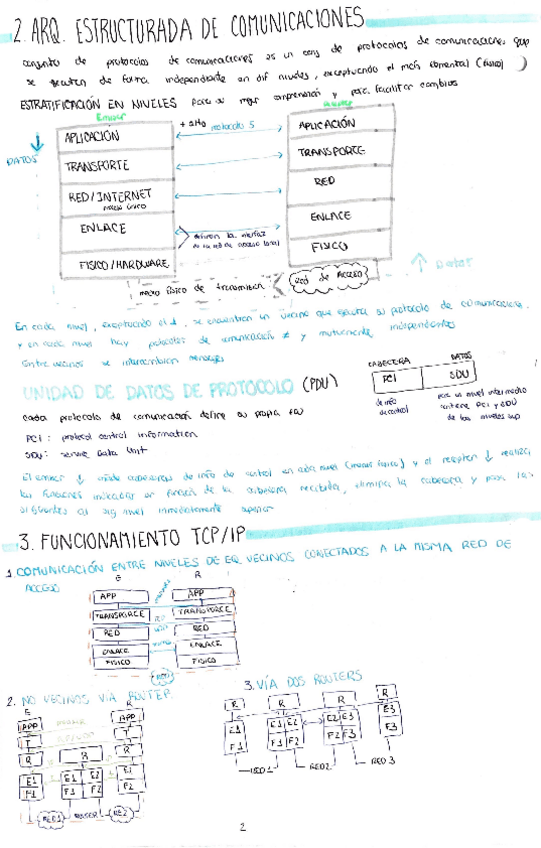 2. ARQ. ESTRUCTURADA DE COMUNICACIONES
conjunto de protocolos de comunicaciones es un conj de protocolos de comunicaciones que
se ejecutan de forma independiente en dif niveles, exceptuando el más elemental (físico)
ESTRATIFICACIÓN EN NIVELES para su mejor comprensión y para facilitar cambios
Emisor
+ alto
protocolo 5
DATOS
APLICACIÓN
APLICACIÓN
TRANSPORTE
TRANSPORTE
RED/INTERNET
RED
ENLACE
ENLACE
definen la interfaz
de la red de acceso local
FISICO/HARDWARE
FISICO
medio físico de transmisión
Red de Acceso
Datos
En cada nivel, exceptuando el 1, se encuentran un vecino que ejecuta su protocolo de comunicaciones.
y en cada nivel hay protocolos de comunicación ≠ y mutuamente independientes
Entre vecinos se intercambian mensajes
UNIDAD DE DATOS DE PROTOCOLO (PDU)
CABECERA
DATOS
PCI
SDU
cada protocolo de comunicación define su propia
de info
de control
para un nivel intermedio
contiene PCI y SDU
de los niveles sup
PCI: protocol control information
SDU: service Data Unit
El emisor ↓ añade cabeceras de info de control en cada nivel (menos físico) y el receptor ↓ realiza
las funciones indicadas en función de la cabecera recibida, elimina la cabecera y pasa los
siguientes al sig nivel inmediatamente superior
3. FUNCIONAMIENTO TCP/IP
1. COMUNICACIÓN ENTRE NIVELES DE EQ VECINOS CONECTADOS A LA MISMA RED DE
ACCESO
E
R
APP
APP
TRANSPORTE
TRANSPORTE
RED
RED
ENLACE
ENLACE
FISICO
FISICO
RED
2. NO VECINOS VÍA ROUTER
3. VÍA DOS ROUTERS
E
R
APP
APP
T
T
R
R
R
E1
E1
E2
E2
F1
F1
F2
F2
RED1
ROUTER
RE2
R
R
R
R
E1
E1
E2
E2
E3
E3
F1
F1
F2
F2
F3
F3
RED1
RED2
RED3
2